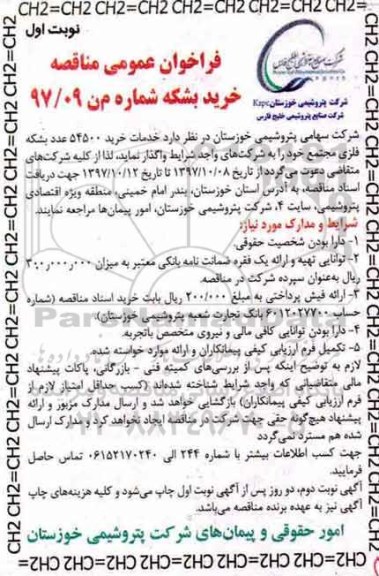 نوبت اول
فراخوان عمومی مناقصه
خرید بشکه شماره م‌ن ۹۷/۰۹
شرکت پتروشیمی خوزستان Kzpc
شرکت صنایع پتروشیمی خلیج فارس
شرکت سهامی پتروشیمی خوزستان در نظر دارد خدمات خرید ۵۴۵۰۰ عدد بشکه
فلزی مجتمع خود را به شرکت‌های واجد شرایط واگذار نماید، لذا از کلیه شرکت‌های
متقاضی دعوت می‌گردد از تاریخ ۱۳۹۷/۱۰/۰۸ تا تاریخ ۱۳۹۷/۱۰/۱۲ جهت دریافت
اسناد مناقصه، به آدرس استان خوزستان، بندر امام خمینی، منطقه ویژه اقتصادی
پتروشیمی، سایت ۴، شرکت پتروشیمی خوزستان، امور پیمان‌ها مراجعه نمایند.
شرایط و مدارک مورد نیاز:
۱- دارا بودن شخصیت حقوقی.
۲- توانایی تهیه و ارائه یک فقره ضمانت نامه بانکی معتبر به میزان ۳۰۰٫۰۰۰٫۰۰۰
ریال به‌عنوان سپرده شرکت در مناقصه.
۳- ارائه فیش پرداختی به مبلغ ۲۰۰/۰۰۰ ریال بابت خرید اسناد مناقصه (شماره
حساب ۶۰۱۲۰۲۷۷۰۰ بانک تجارت شعبه پتروشیمی خوزستان).
۴- دارا بودن توانایی کافی مالی و نیروی متخصص باتجربه.
۵- تکمیل فرم ارزیابی کیفی پیمانکاران و ارائه موارد خواسته شده.
لازم به توضیح اینکه پس از بررسی‌های کمیته فنی - بازرگانی، پاکات پیشنهاد
مالی متقاضیانی که واجد شرایط شناخته شده‌اند (کسب حداقل امتیاز لازم از
فرم ارزیابی کیفی پیمانکاران) بازگشایی خواهد شد و ارسال مدارک مزبور و ارائه
پیشنهاد هیچ‌گونه حقی جهت شرکت در مناقصه ایجاد نخواهد کرد و مدارک ارسال
شده هم مسترد نمی‌گردد
جهت کسب اطلاعات بیشتر با شماره ۲۴۴ الی ۰۶۱۵۲۱۷۰۲۴۰ تماس حاصل
فرمایید.
آگهی نوبت دوم، دو روز پس از آگهی نوبت اول چاپ می‌شود و کلیه هزینه‌های چاپ
آگهی نیز به عهده برنده مناقصه می‌باشد.
امور حقوقی و پیمان‌های شرکت پتروشیمی خوزستان